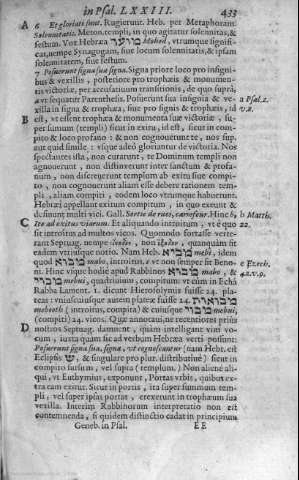 in Psal. LXXIII. 433
A 6 Et gloriati sunt. Rugierunt. Heb. per Metaphoram
Solennitatis. Meton. templi, in quo agitatur solennitas, &
festum. Vox Hebræa מועד Mohed, vtrumque signifi-
cat, nempe Synagogam, siue locum solennitatis, & ipsam
solemnitatem, siue festum.
7 Posuerunt signa sua signa. Signa priore loco pro insigni-
bus & vexillis, posteriore pro trophæis & monumen-
tis victoriæ, per accusatiuum transitionis, de quo suprà,
a vt sequatur Parenthesis. Posuerunt sua insignia & ve- a Psal. 2.
xilla in signa & trophæa, siue pro signis & trophæis, id v. 2.
B est, vt essent trophæa & monumenta suæ victoriæ, su-
per summum (templi) sicut in exitu, id est, sicut in com-
pito & loco profano: & non cognouerunt te, nos sup.
aut quid simile: vsque adeò gloriantur de victoria. Nos
spectantes ista, non curarunt, te Dominum templi non
agnouerunt, non distinxerunt inter sanctum & profa-
num, non discreuerunt templum ab exitu siue compi-
to, non cognouerunt aliam esse debere rationem tem-
pli, aliam compiti, eodem loco vtrumque habuerunt.
Hebræi appellant exitum compitum, in quo exeunt &
desinunt multi vici. Gall. Sortie de rues, carrefour. Hinc b, b Matth.
C Ite ad exitus viarum. Et aliquando introitum, vt quæ 22.
sit introitus ad multos vicos. Quomodo fortasse verte-
rant Septuag. nempe non quanquàm sit
eadem vtriusque notio. Nam Heb. mebi, idem
quod מבוא mabo, introitus, c vt non semper sit Beno- c Ezech.
ni. Hinc vsque hodie apud Rabbinos מבוא mabo, & 42. v. 9.
mebui, quadruuium, compitum: vt eum in Ech
Rabba Lament. 1. dicunt Hierosolymis fuisse 24. pla-
teas: vniuscuiusque autem plateæ fuisse 24. מבואות
mebooth (introitus, compita) & cuiusque mabui
(compiti) 24. vicos. Quæ annotaui, ne recentiores prius
D nostros Septuag. damnent, quàm intelligant vim vo-
cum, iuxta quam sic ad verbum Hebræa verti possunt:
Posuerunt signa sua, signa, vt cognosceretur (nam Hebr. est
Eclipsis & singulare pro plur. distributiuè) sicut in
compito sursum, vel supra (templum.) Non aliene ali-
qui, vt Euthymius, exponunt, Portas vrbis, quibus ex-
tra eam exitur. Sicut in portis, ita super summum tem-
pli, vel super ipsas portas, erexerunt in trophæum sua
vexilla. Interim Rabbinorum interpretatio non est
contemnenda, si quidem distinctio cadat in principium
Geneb. in Psal. EE